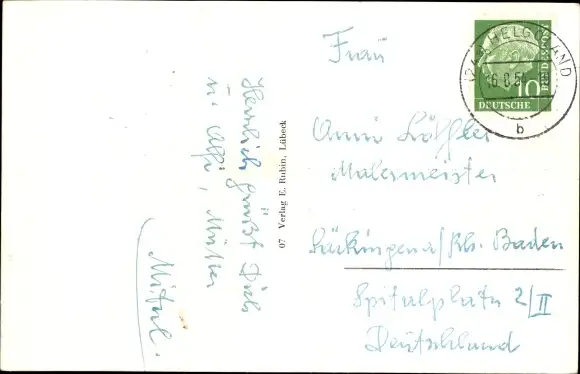 Herzlich grüßt Dich
u. Alfi, Mutter
07 Verlag E. Rubin, Lübeck
Frau
Anni Löffler
Malermeister
Säckingen a/Rh. Baden
Spitalplatz 2/II
Deutschland
HELGOLAND
b
DEUTSCHE
BUNDESPOST
10